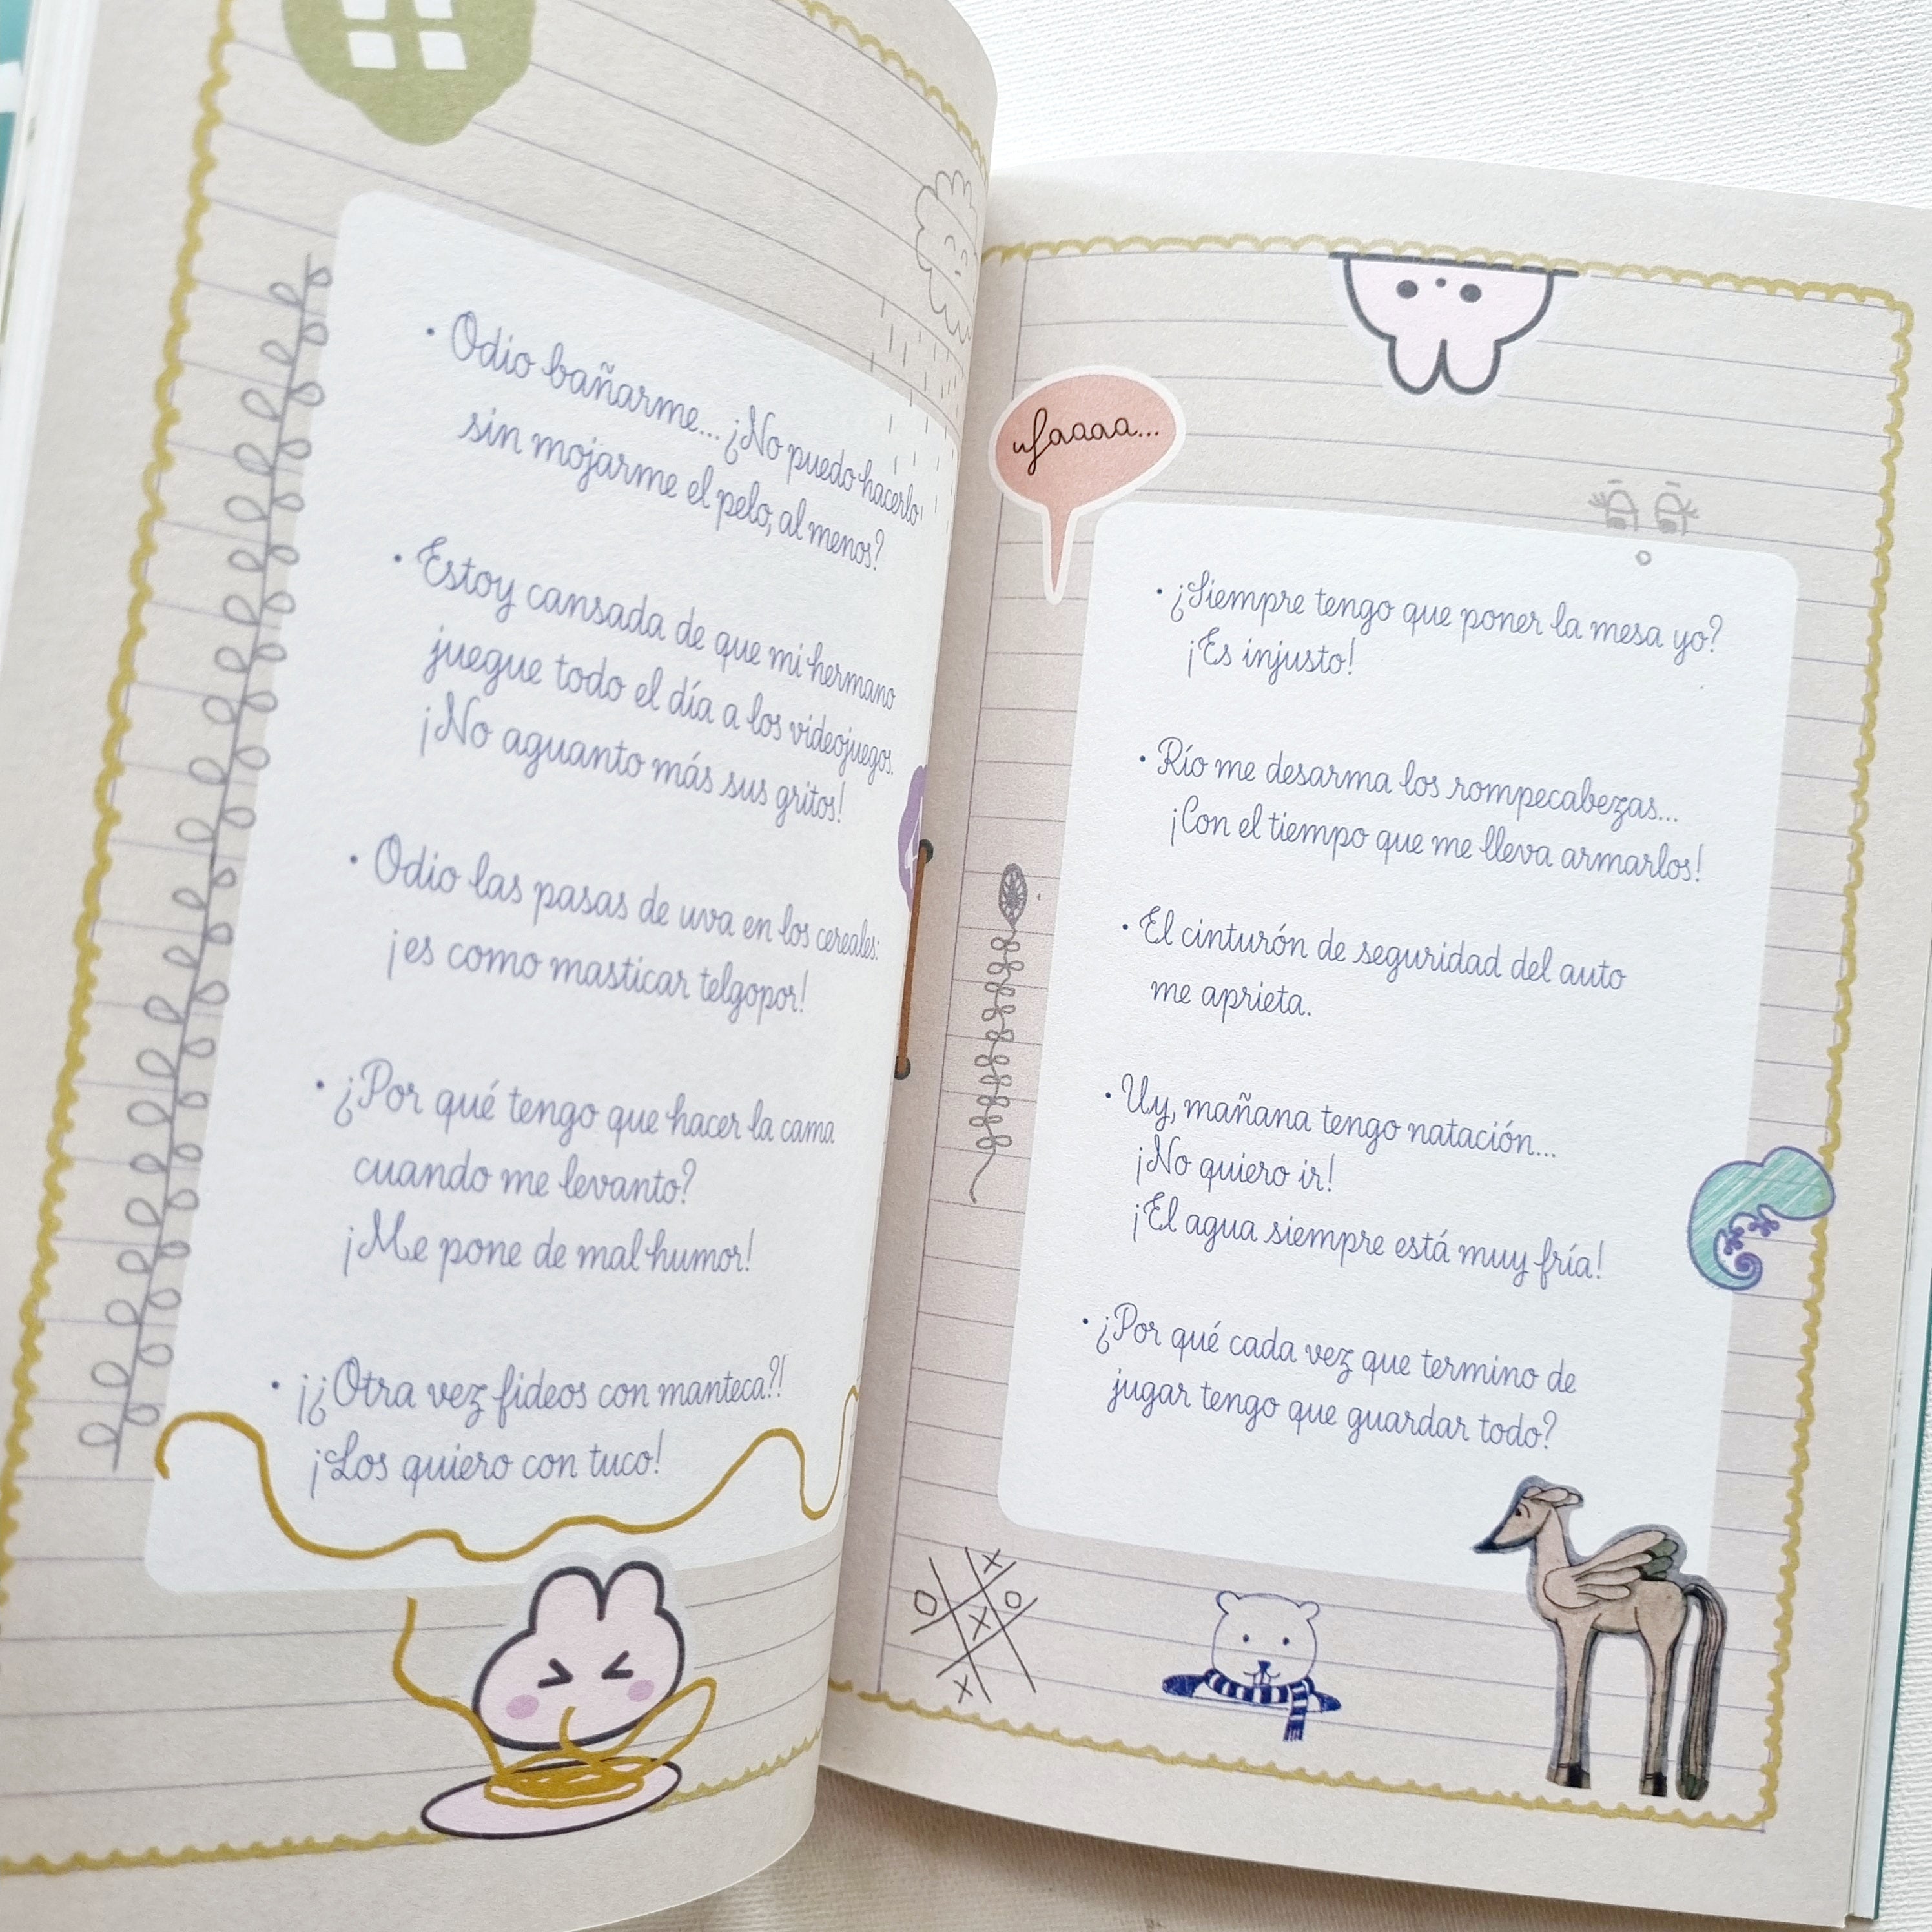 • Odio bañarme... ¿No puedo hacerlo
sin mojarme el pelo, al menos?
• Estoy cansada de que mi hermano
juegue todo el día a los videojuegos.
¡No aguanto más sus gritos!
• Odio las pasas de uva en los cereales:
¡es como masticar telgopor!
• ¿Por qué tengo que hacer la cama
cuando me levanto?
¡Me pone de mal humor!
• ¡¿Otra vez fideos con manteca?!
¡Los quiero con tuco!
ufaaaa...
• ¿Siempre tengo que poner la mesa yo?
¡Es injusto!
• Río me desarma los rompecabezas...
¡Con el tiempo que me lleva armarlos!
• El cinturón de seguridad del auto
me aprieta.
• Uy, mañana tengo natación...
¡No quiero ir!
¡El agua siempre está muy fría!
• ¿Por qué cada vez que termino de
jugar tengo que guardar todo?
X
O X O
X